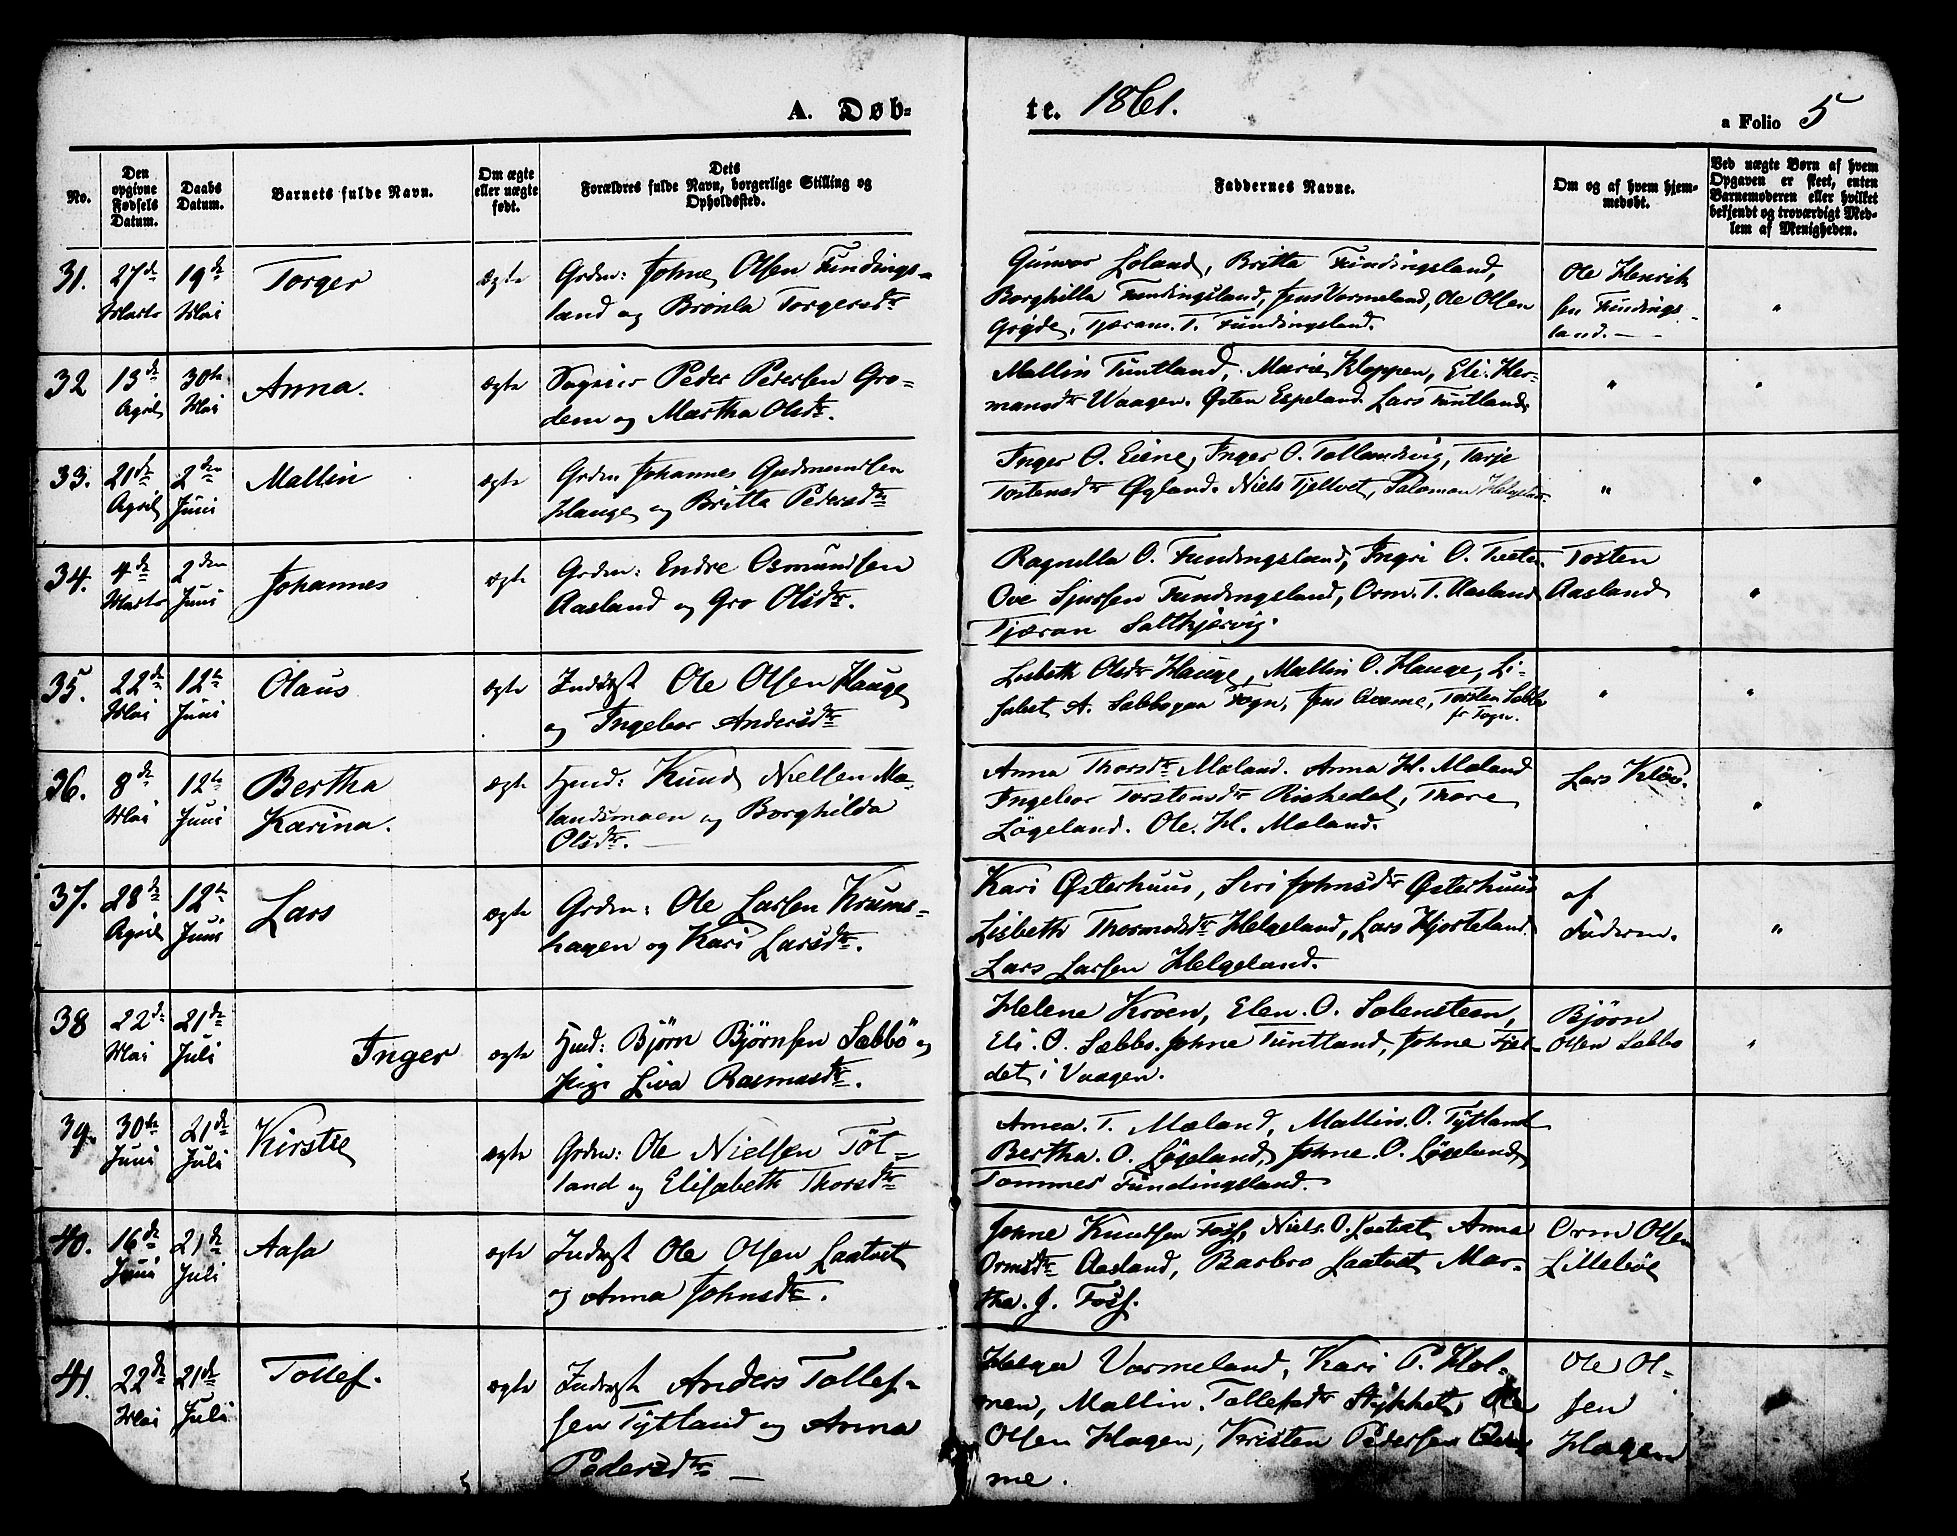 A. Døb-
te. 1861.
a Folio 5
No.
Den opgivne Fødsels Datum.
Daabs Datum.
Barnets fulde Navn.
Om ægte eller uægte født.
Dets Forældres fulde Navn, borgerlige Stilling og Opholdssted.
Faddernes Navne.
Om og af hvem hjemmedøbt.
Ved uægte Børn af hvem Opgaven er skeet, enten Barnemoderen eller hvilket bekjendt og troværdigt Medlem af Menigheden.
31. 27de Marts 19de Mai Torger ægte
Grdm: Johne Olsen Fundings-
land og Brönla Torgersdtr
Gunvor Loland, Britta Fundingsland,
Borghilla Fundingsland, Jens Vormeland, Ole Olsen
Gryde, Tjæran. T. Fundingsland.
Ole Henrik
sen Fundings-
land. "
32 13de April 30te Mai Anna. ægte
Peder Pedersen Gro-
dem og Martha Olsdtr.
Mallin Tuntland, Marie Kloppen, Eli Her-
mansdtr Vaagen. Østen Espeland. Lars Tuntland
" "
33. 21de April 2den Juni Mallin ægte
Grdm Johannes Gudmundsen
Hauge og Britta Pedersdtr
Inger O. Eiene, Inger O. Tollandsvig, Tarje
Tostensdtr Øyland. Niels Tjeltvet, Salomon
" "
34. 4de Marts 2den Juni Johannes ægte
Grdm: Endre Osmundsen
Aasland og Gro Olsdtr.
Ragnilla O. Fundingsland, Ingri O. Tveten
Ove Sjursen Fundingsland, Orm. T. Aasland
Tjæran Saltkjærvig.
Tosten
Aasland "
35. 22de Mai 12te Juni Olaus ægte
Inderst Ole Olsen Hauge
og Ingebor Andersdtr
Lisbeth Olsdtr Hauge, Mallin O. Hauge, Li-
sabet A. Sabbø paa Fogn, Jens Aveme, Torsten Sabbø
fr Fogn.
" "
36. 8de Mai 12te Juni Bertha
Karina. ægte
Hmd: Knud Nielsen Mæ-
landsmoen og Borghilda
Olsdtr.
Anna Thorsdtr Mæland. Anna H. Mæland
Ingebor Torstensdtr Riskedal, Thore
Løgeland. Ole. H. Mæland.
Lars Kløv. "
37. 28de April 12te Juni Lars ægte
Grdm: Ole Larsen Krums-
hagen og Kari Larsdtr.
Kari Østerhuus, Siri Johnsdtr Østerhuus
Lisbeth Thormodsdtr Helgeland, Lars Hjorteland
Lars Larsen Helgeland.
af
Faderen. "
38 22de Mai 21de Juli Inger ægte
Hmd: Bjørn Bjørnsen Sæbbö og
Pige Liva Rasmusdtr.
Helene Kroen, Elen. O. Salensteen,
Eli. O. Sæbbø. Johne Tuntland, Johne Fjel-
det i Vaagen.
Bjørn
Olsen Sæbbø "
39. 30te Juni 21de Juli Kirstie ægte
Grdm: Ole Nielsen Töt-
land og Elisabeth Thorsdtr
Anna. T. Mæland, Mallin. O. Tÿtland
Bertha. O. Løgeland, Johne. O. Løgeland
Tommes Fundingsland.
40. 16de Juni 21de Juli Aasa ægte
Inderst Ole Olsen Laatvet
og Anna Johnsdtr.
Johne Knudsen Foss, Niels. O. Laatvet, Anna
Ormsdtr Aasland, Barbro Laatvet, Mar-
tha. J. Foss.
Orm Olsen
Lillebøe
41. 22de Mai 21de Juli Tollef. ægte
Inderst Anders Tollef-
sen Tÿtland og Anna
Pedersdtr
Helga Vormeland, Kari P. Hol-
men, Mallin Tollefsdtr Stykket, Ole
Olsen Hagen, Kristen Pedersen
me.
Ole Ol-
sen
Hagen